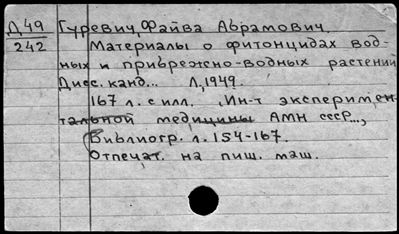 Д 49 Гуревич, Файва Абрамович.
242 Материалы о фитонцидах вод-
ных и прибрежно-водных растений
Дисс. канд... Л, 1949.
167 л. с илл. (Ин-т эксперимен-
тальной медицины АМН СССР...,
Библиогр. л. 154-167.
Отпечат. на пиш. маш.